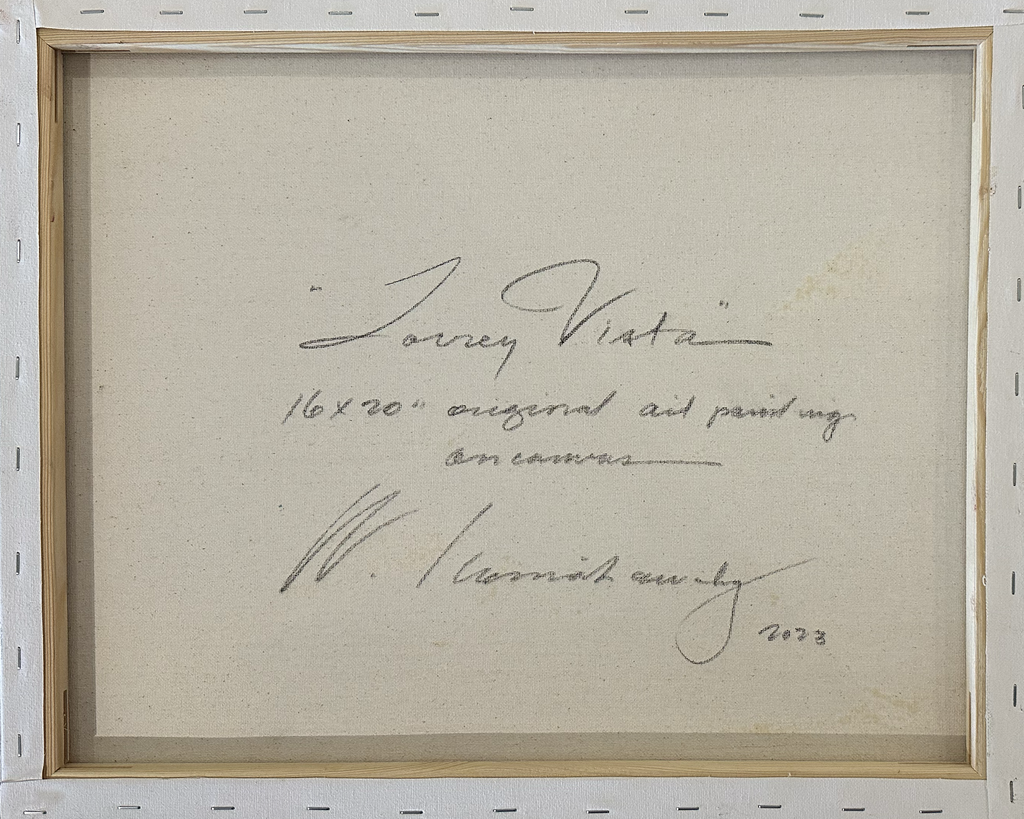 "Torrey Vista"
16x20" original oil painting
on canvas
W.
2023